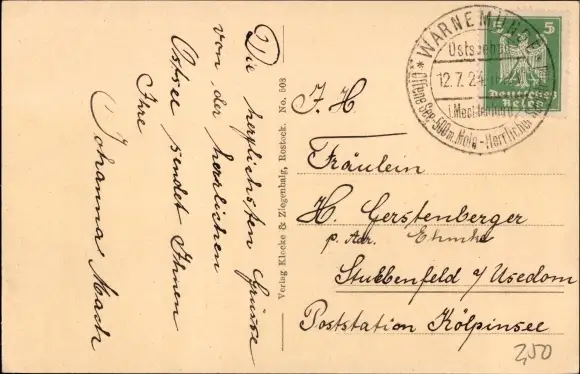 Die herzlichsten Grüsse
von der herrlichen
Ostsee sendet Ihnen
Ihre
Johanna Mach
Verlag Klocke & Ziegenhalg, Rostock. No. 508
WARNEMÜNDE
Ostseebad
12.7.24
i. Mecklenburg
Offene See-500m. Mole-Herrlicher
5 5
Deutsches
Reich
F. H.
Fräulein
H. Gerstenberger
p. Adr. Ehmke
Stubbenfeld a/ Usedom
Poststation Kölpinsee
2,50